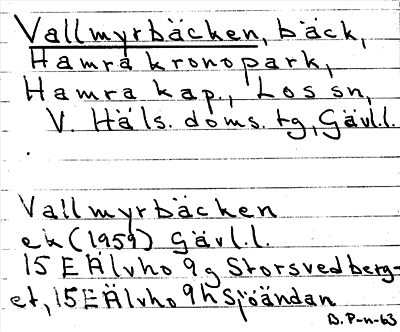 Vallmyrbäcken, bäck,
Hamra kronopark,
Hamra kap., Los sn,
V. Häls. doms. tg, Gävl.l.
Vallmyrbäcken
ek (1959) Gävl.l.
15 E Älvho 9g Storsvedberg-
et, 15 E Älvho 9h Sjöändan
B.P-n-63